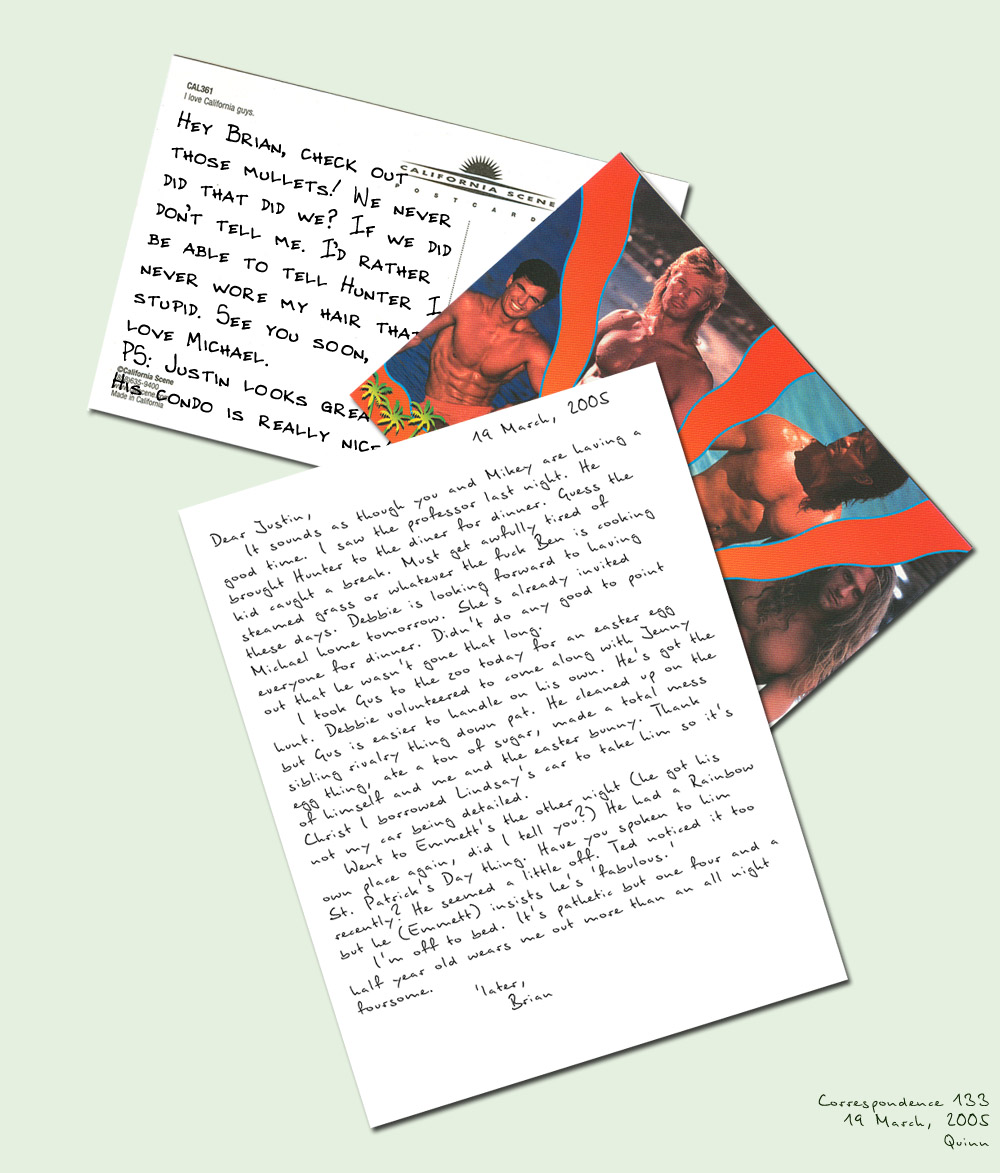 CAL361
I love California guys.
HEY BRIAN, CHECK OUT
THOSE MULLETS! WE NEVER
DID THAT DID WE? IF WE DID
DON'T TELL ME. I'D RATHER
BE ABLE TO TELL HUNTER I
NEVER WORE MY HAIR THAT
STUPID. SEE YOU SOON,
LOVE MICHAEL.
PS: JUSTIN LOOKS GREA
HIS CONDO IS REALLY NICE
©California Scene
635-9400
Made in California
CALIFORNIA SCENE
POSTCARD
19 March, 2005
Dear Justin,
It sounds as though you and Mikey are having a
good time. I saw the professor last night. He
brought Hunter to the diner for dinner. Guess the
kid caught a break. Must get awfully tired of
steamed grass or whatever the fuck Ben is cooking
these days. Debbie is looking forward to having
Michael home tomorrow. She's already invited
everyone for dinner. Didn't do any good to point
out that he wasn't gone that long.
I took Gus to the zoo today for an easter egg
hunt. Debbie volunteered to come along with Jenny
but Gus is easier to handle on his own. He's got the
sibling rivalry thing down pat. He cleaned up on the
egg thing, ate a ton of sugar, made a total mess
of himself and me and the easter bunny. Thank
Christ I borrowed Lindsay's car to take him so it's
not my car being detailed.
Went to Emmett's the other night (he got his
own place again, did I tell you?) He had a Rainbow
St. Patrick's Day thing. Have you spoken to him
recently? He seemed a little off. Ted noticed it too
but he (Emmett) insists he's 'fabulous.'
I'm off to bed. It's pathetic but one four and a
half year old wears me out more than an all night
foursome.
'later,
Brian
Correspondence 133
19 March, 2005
Quinn